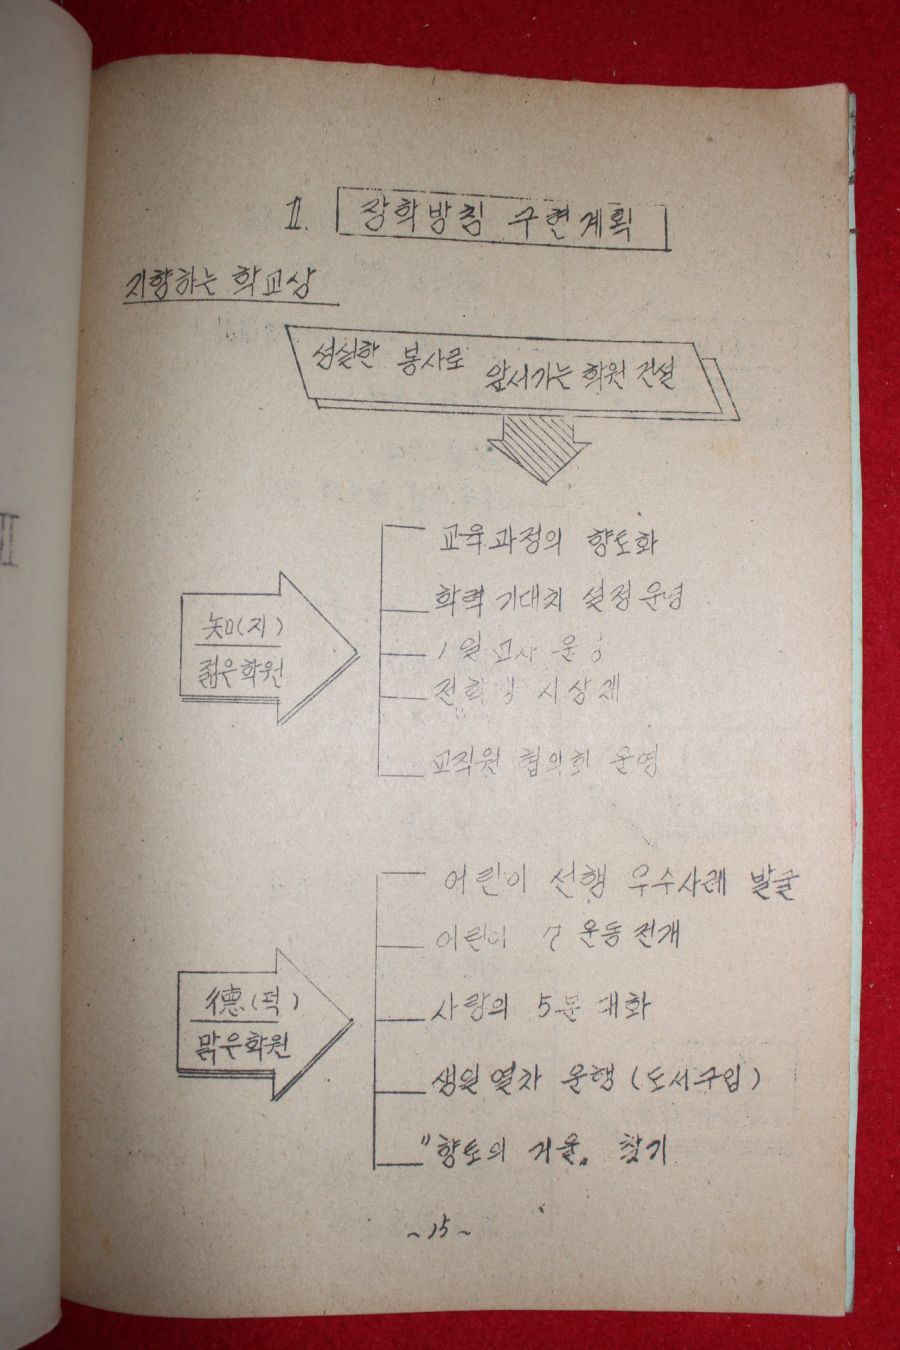 1. 장학방침 구현계획
지향하는 학교상
성실한 봉사로 앞서가는 학원 건설
교육과정의 향토화
학력 기대치 설정 운영
知(지)
젊은학원
1일 교사 운영
전학생 시상제
교직원 협의회 운영
어린이 선행 우수사례 발굴
어린이 7 운동 전개
德(덕)
맑은학원
사랑의 5분 대화
생일 열차 운행 (도서구입)
"향토의 거울„ 찾기
~15~